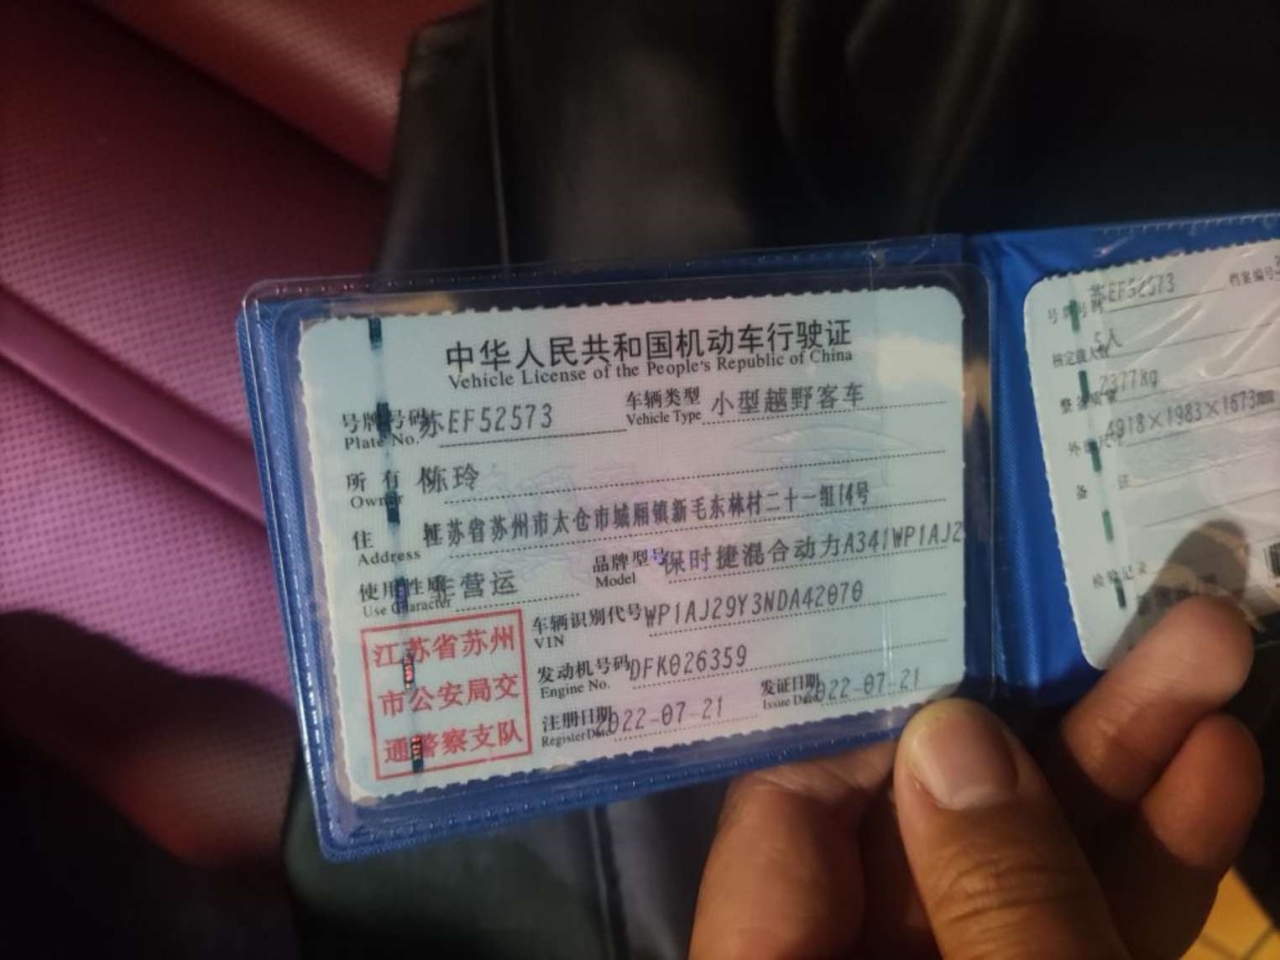 中华人民共和国机动车行驶证
Vehicle License of the People's Republic of China
号牌号码 苏EF52573 车辆类型 小型越野客车
Plate No. Vehicle Type
所有 陈玲
Owner
住 江苏省苏州市太仓市城厢镇新毛东林村二十一组14号
Address
使用性质 非营运 品牌型号 保时捷混合动力A341WP1AJ2
Use Character Model
车辆识别代号 WP1AJ29Y3NDA42070
VIN
发动机号码 DFK026359
Engine No.
注册日期 2022-07-21 发证日期 2022-07-21
Register Date Issue Date
江苏省苏州
市公安局交
通警察支队
号牌号码 苏EF52573 档案编号
核定载人数 5人
整备质量 2377kg
外廓尺寸 4918×1983×1673mm
备 注
检验记录